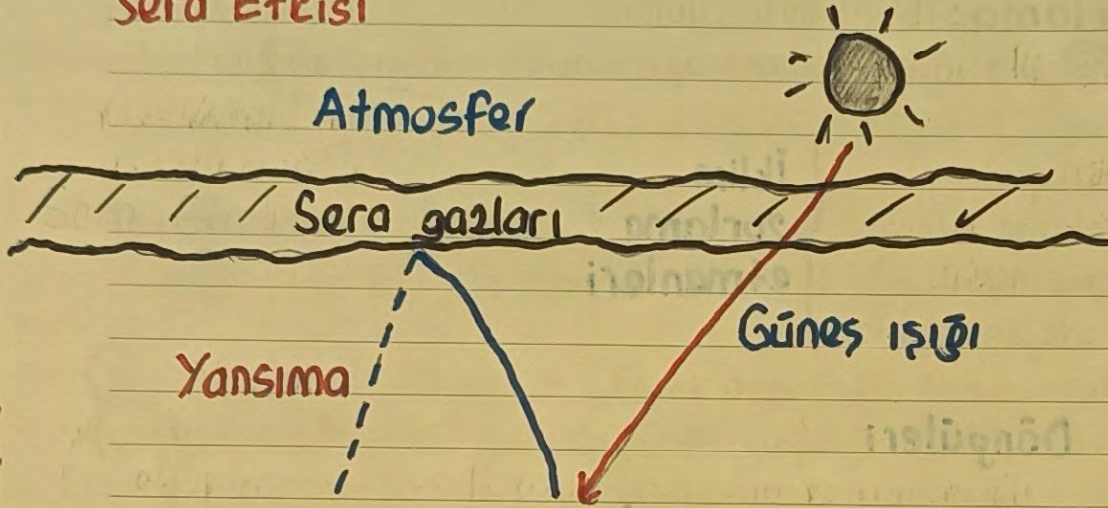 Sera Etkisi
Atmosfer
Sera gazları
Güneş ışığı
Yansıma